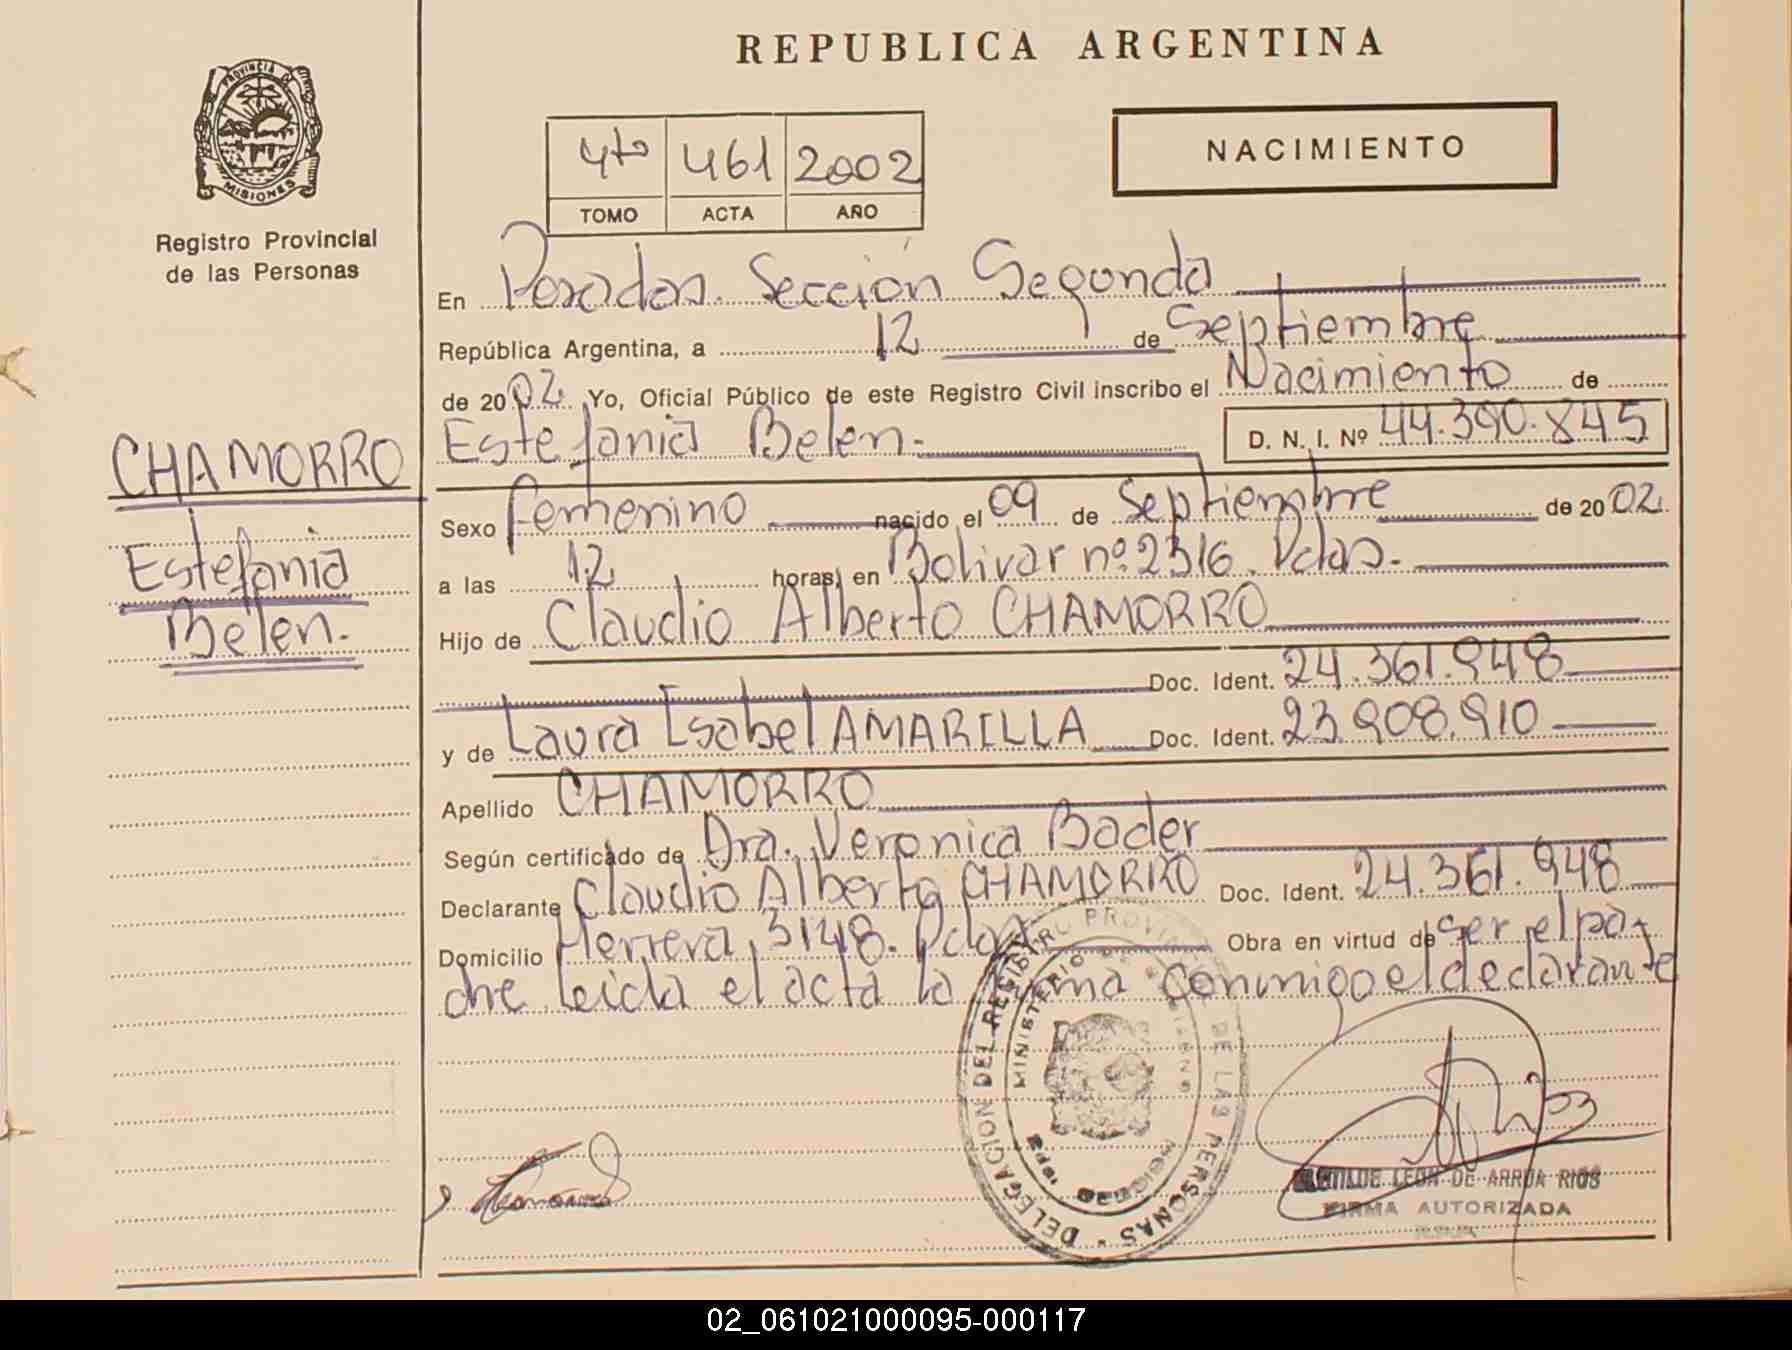 REPUBLICA ARGENTINA
PROVINCIA DE
MISIONES
Registro Provincial
de las Personas
4to 461 2002
TOMO ACTA AÑO
NACIMIENTO
En Posadas. Sección Segunda
República Argentina, a 12 de Septiembre
de 2002. Yo, Oficial Público de este Registro Civil inscribo el Nacimiento de
Estefania Belen.- D. N. I. Nº 44.390.845
CHAMORRO
Estefania
Belen.-
Sexo femenino nacido el 09 de Septiembre de 2002.
a las 12 horas, en Bolivar nº 2316. Pdas.-
Hijo de Claudio Alberto CHAMORRO
Doc. Ident. 24.361.948
y de Laura Isabel AMARILLA Doc. Ident. 23.908.910
Apellido CHAMORRO
Según certificado de Dra. Veronica Bader
Declarante Claudio Alberto CHAMORRO Doc. Ident. 24.361.948
Domicilio Herrera 3148. Pdas. Obra en virtud de ser el pa-
dre leida el acta la firma conmigo el declarante
DELEGACION DEL REGISTRO PROVINCIAL DE LAS PERSONAS
MINISTERIO DE
LEON DE ARRUA RIOS
FIRMA AUTORIZADA
02_061021000095-000117